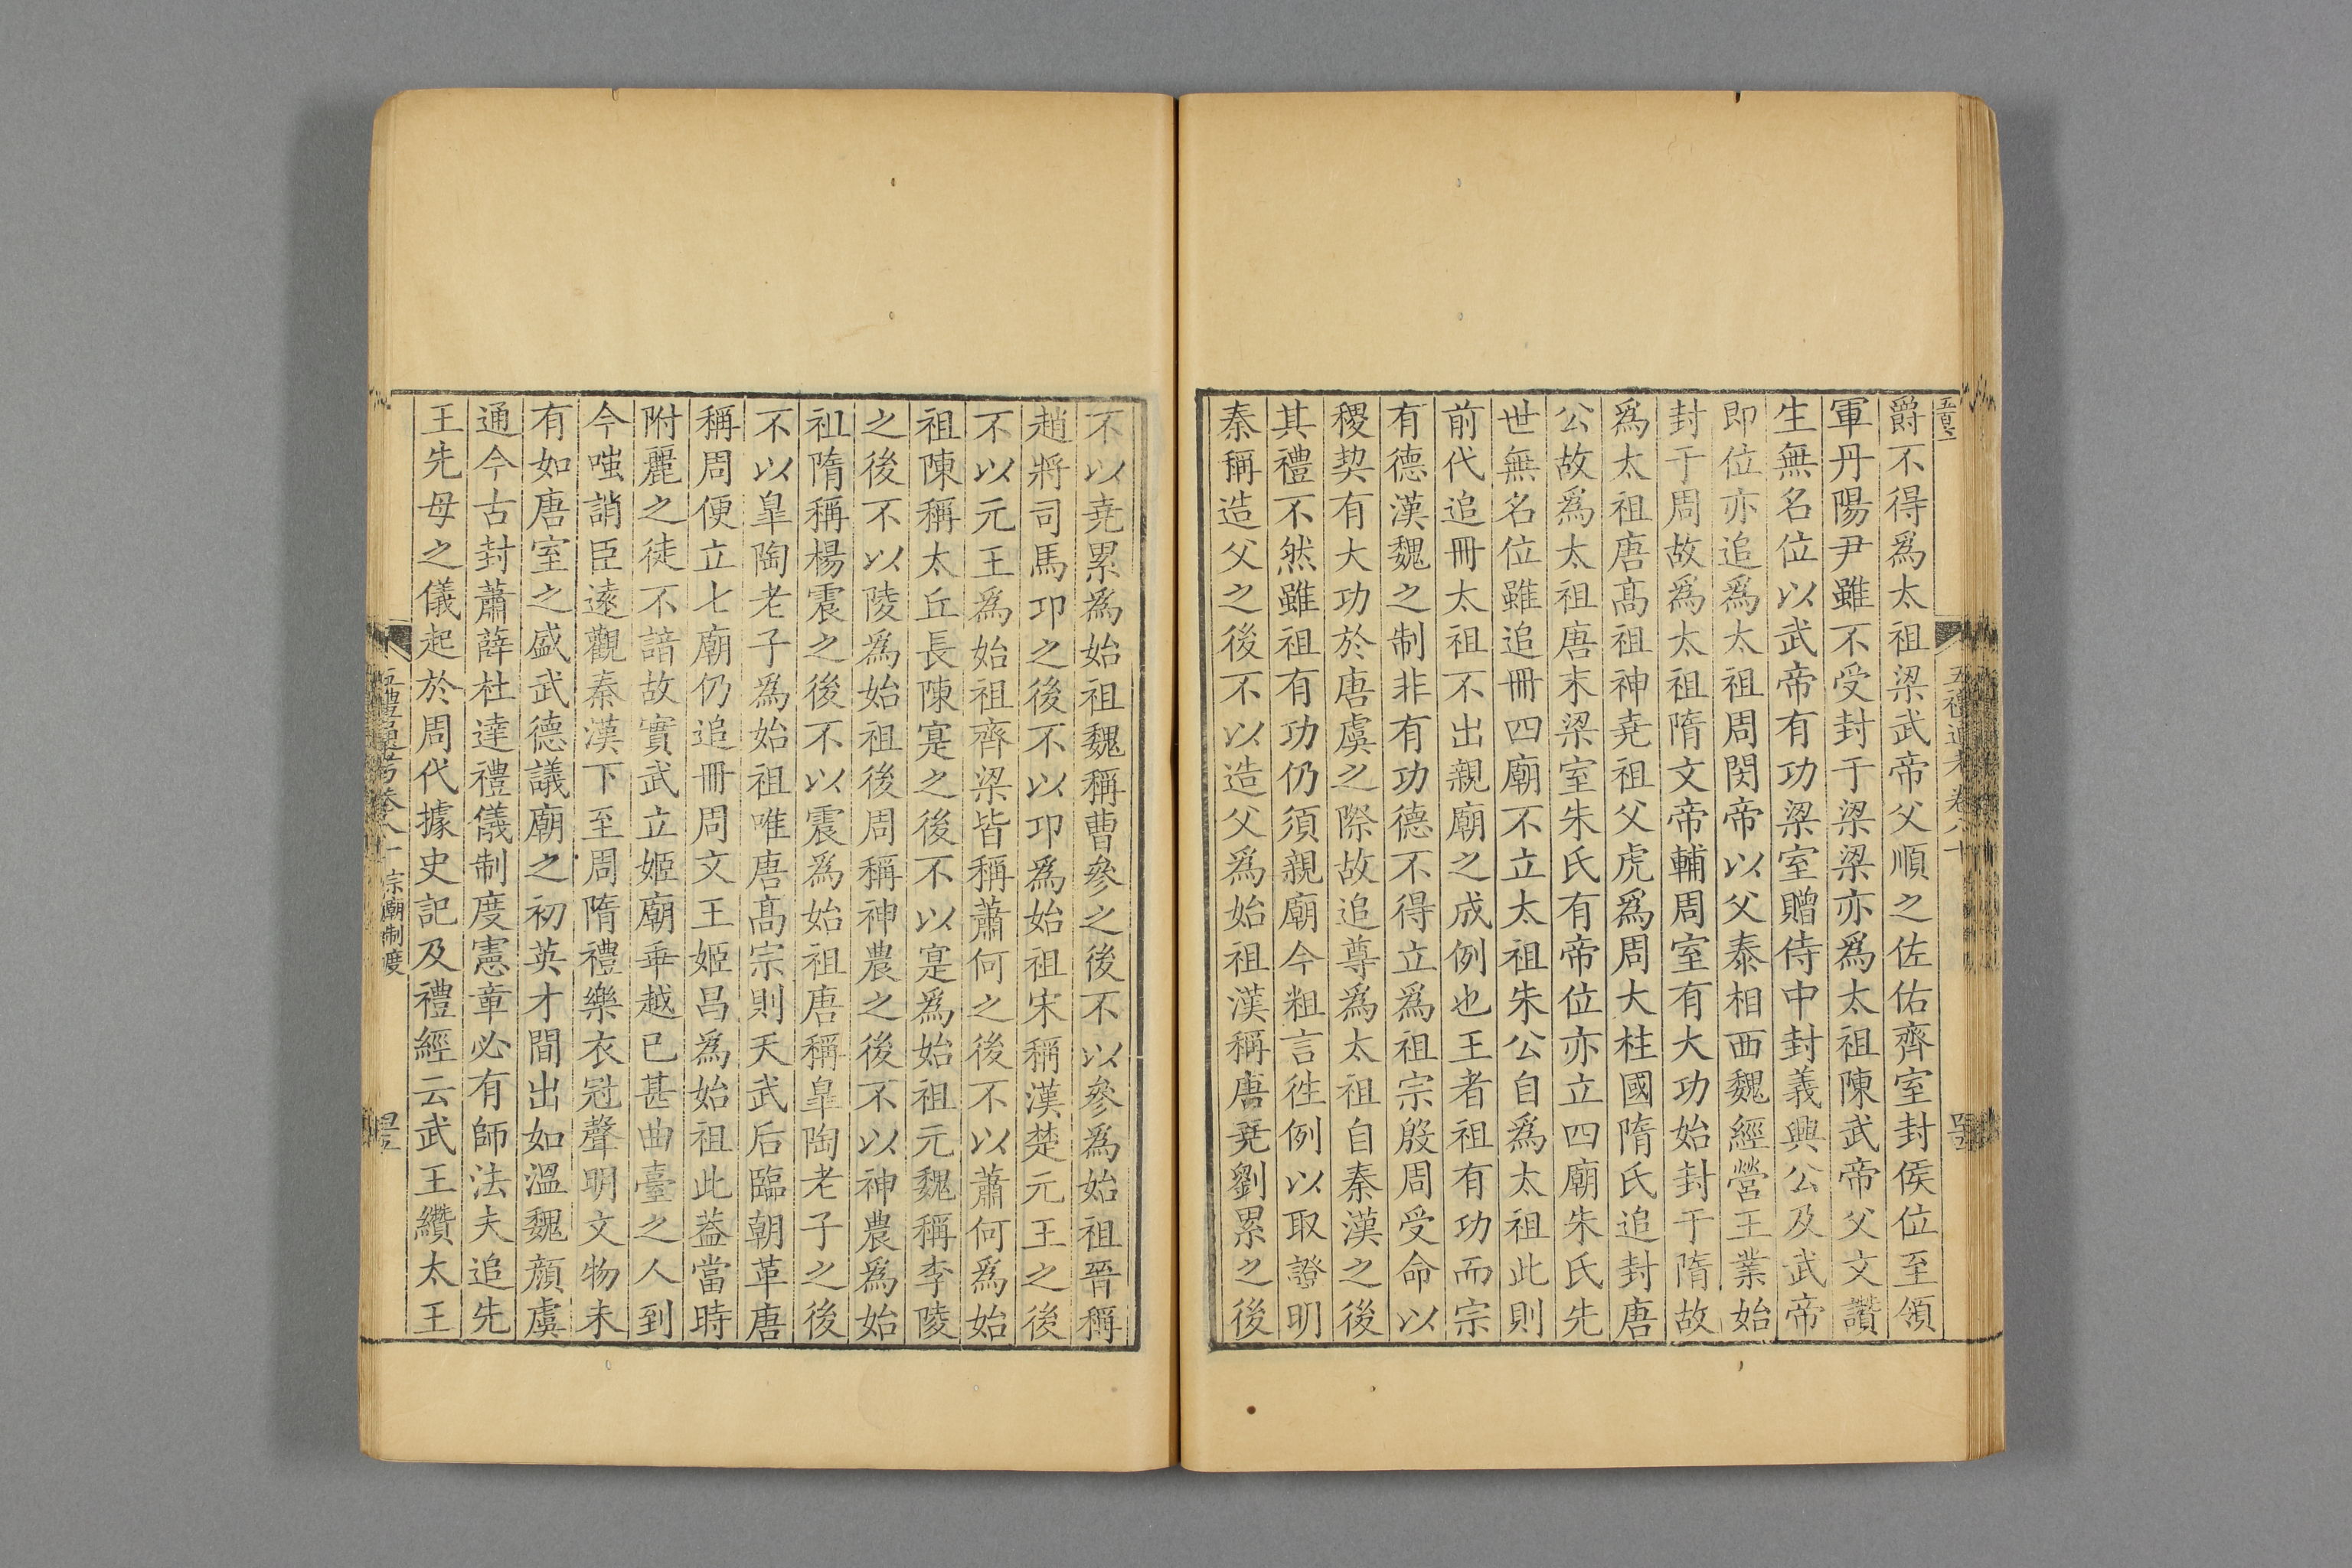 爵不得爲太祖梁武帝父順之佐佑齊室封侯位至領
軍丹陽尹雖不受封于梁梁亦爲太祖陳武帝父文讚
生無名位以武帝有功梁室贈侍中封義興公及武帝
即位亦追爲太祖周閔帝以父泰相西魏經營王業始
封于周故爲太祖隋文帝輔周室有大功始封于隋故
爲太祖唐髙祖神堯祖父虎爲周大柱國隋氏追封唐
公故爲太祖唐末梁室朱氏有帝位亦立四廟朱氏先
世無名位雖追冊四廟不立太祖朱公自爲太祖此則
前代追冊太祖不出親廟之成例也王者祖有功而宗
有德漢魏之制非有功德不得立爲祖宗殷周受命以
稷契有大功於唐虞之際故追尊爲太祖自秦漢之後
其禮不然雖祖有功仍須親廟今粗言徃例以取證明
秦稱造父之後不以造父爲始祖漢稱唐堯劉累之後
不以堯累爲始祖魏稱曹參之後不以參爲始祖晉稱
趙將司馬卬之後不以卬爲始祖宋稱漢楚元王之後
不以元王爲始祖齊梁皆稱蕭何之後不以蕭何爲始
祖陳稱太丘長陳寔之後不以寔爲始祖元魏稱李陵
之後不以陵爲始祖後周稱神農之後不以神農爲始
祖隋稱楊震之後不以震爲始祖唐稱皐陶老子之後
不以皐陶老子爲始祖唯唐髙宗則天武后臨朝革唐
稱周便立七廟仍追冊周文王姬昌爲始祖此葢當時
附麗之徒不諳故實武立姬廟乖越已甚曲臺之人到
今嗤誚臣遠觀秦漢下至周隋禮樂衣冠聲明文物未
有如唐室之盛武德議廟之初英才間出如溫魏顔虞
通今古封蕭薛杜達禮儀制度憲章必有師法夫追先
王先母之儀起於周代據史記及禮經云武王纘太王
宗廟制度